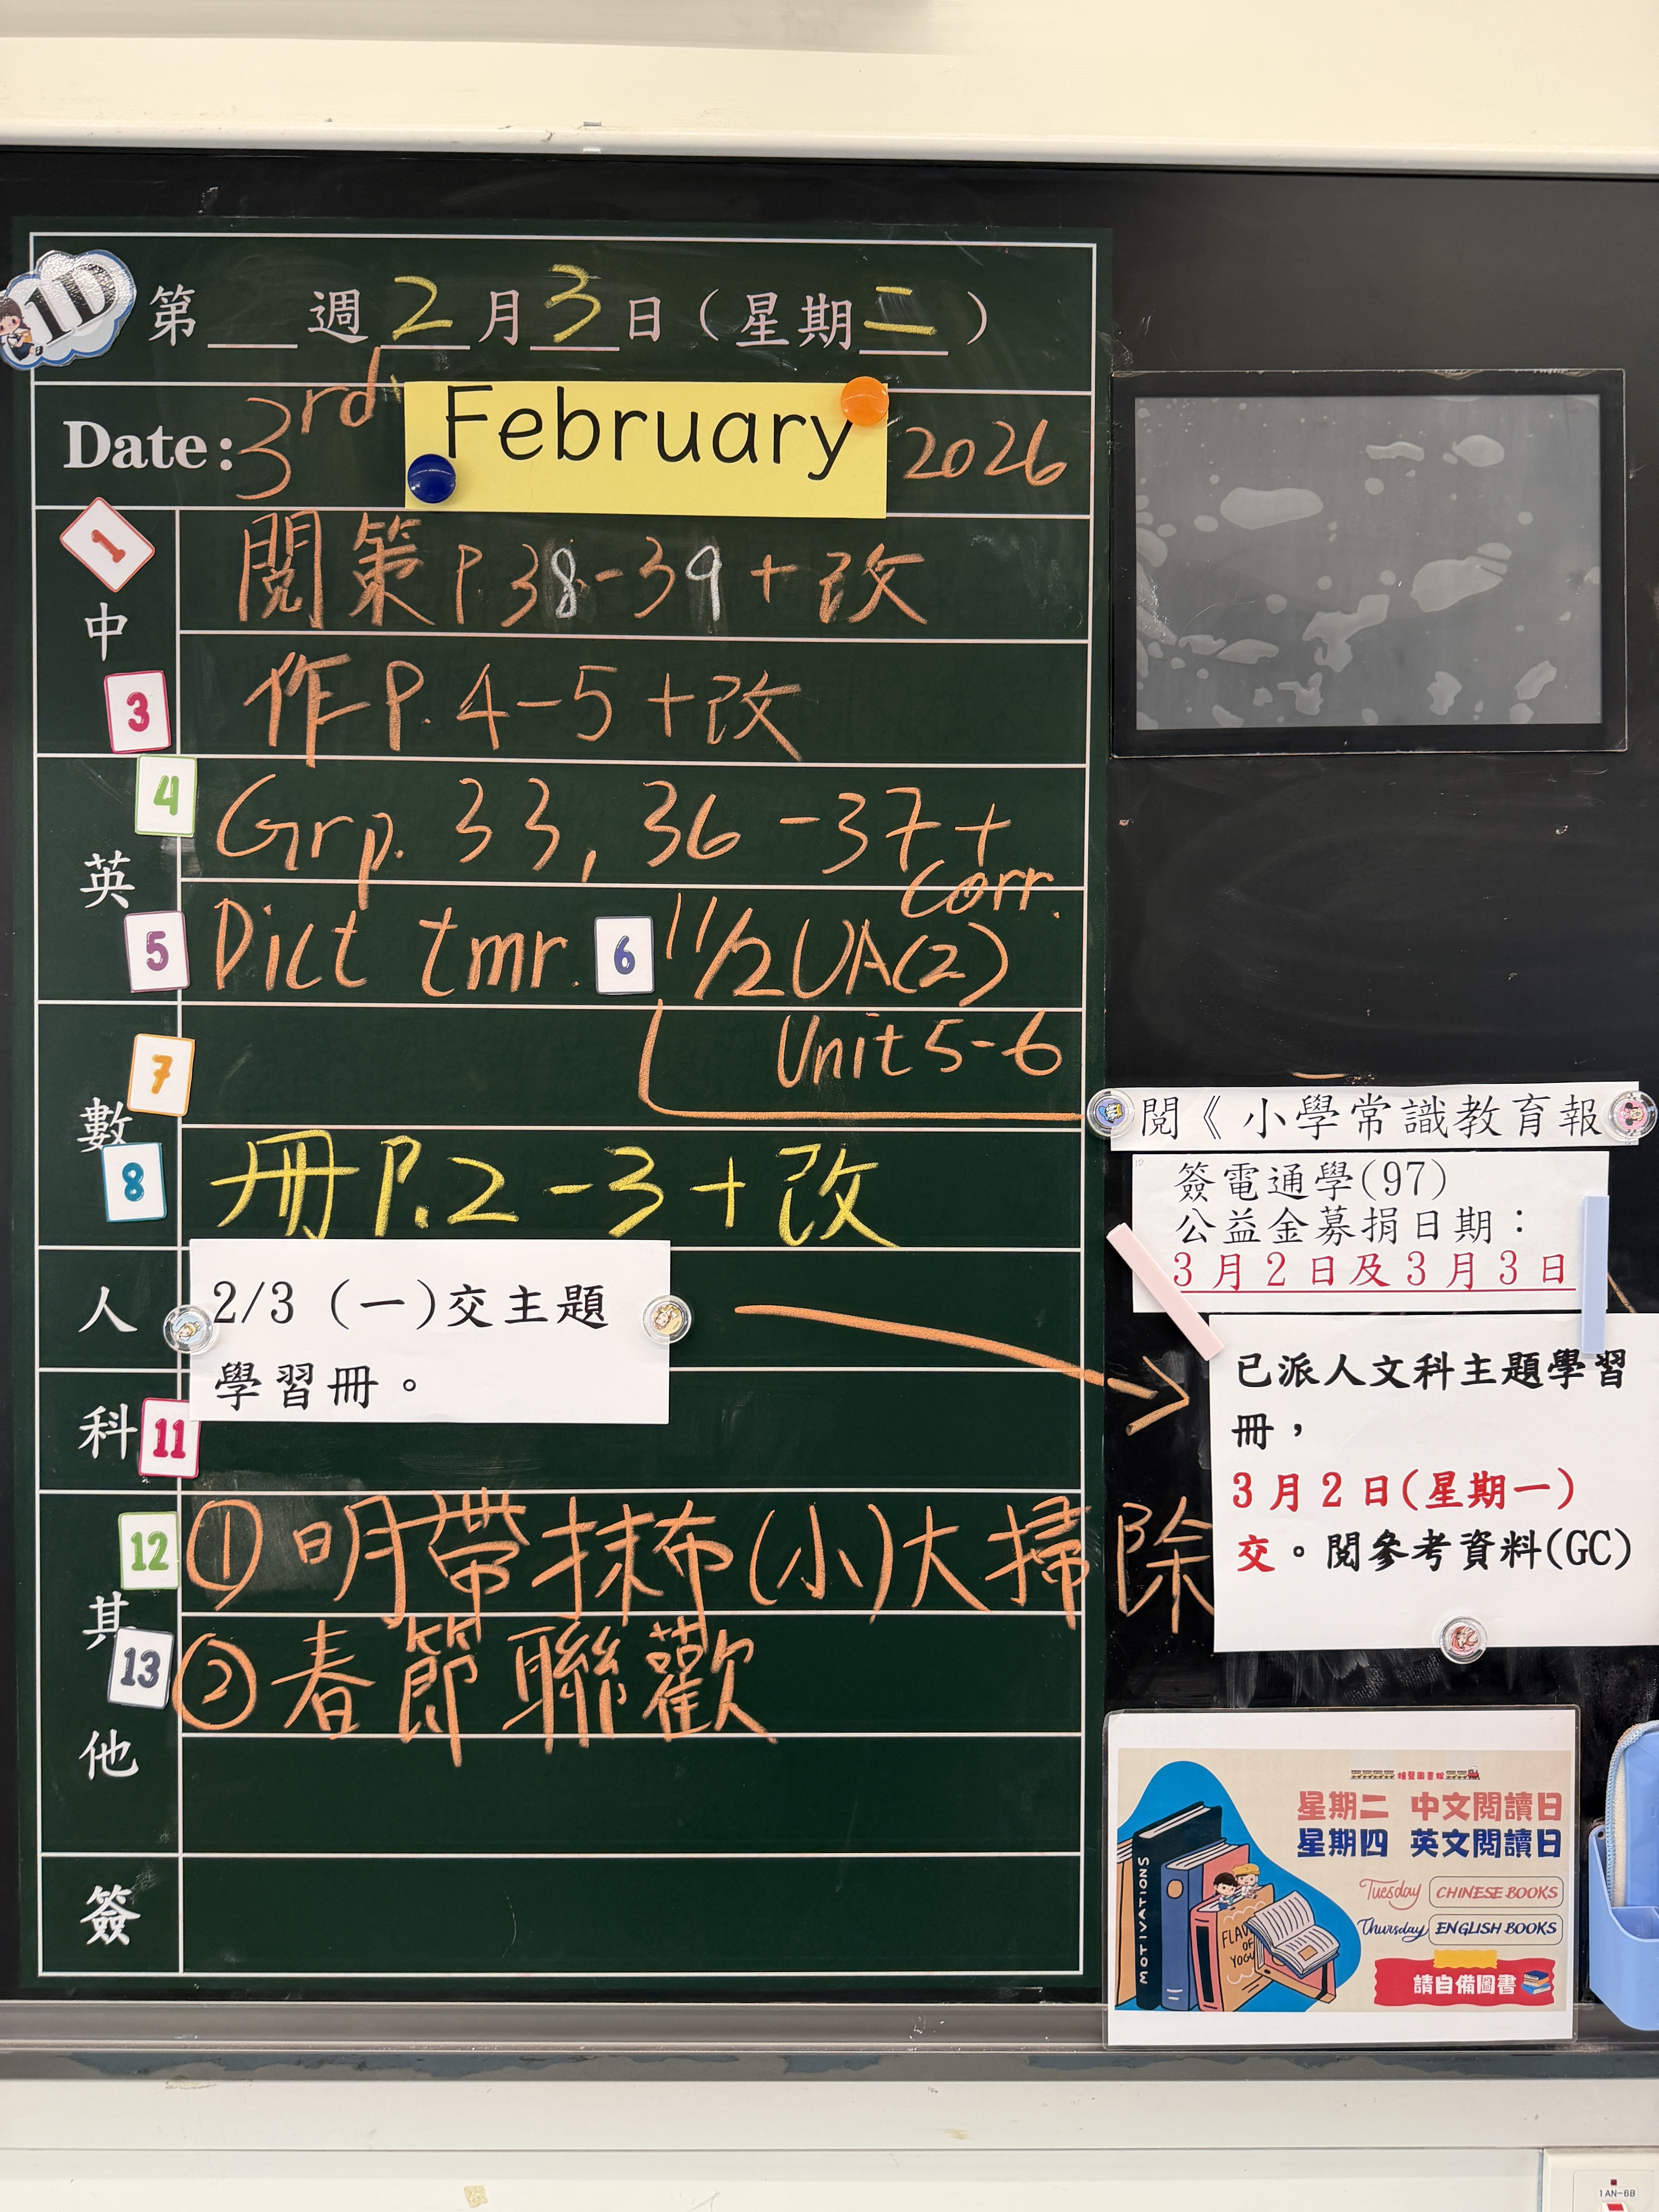 1D
第 週2月3日(星期二)
Date: 3rd February 2026
1
中
閱策P38-39+改
3
作P.4-5+改
4
英
Grp. 33, 36-37+
corr.
5
Dict tmr. 6 11/2 UA(2)
Unit 5-6
7
數
8
冊P.2-3+改
人
2/3 (一)交主題
學習冊。
科
11
12
①明帶抹布(小)大掃除
其
13
②春節聯歡
他
簽
閱《小學常識教育報
1D
簽電通學(97)
公益金募捐日期:
3月2日及3月3日
已派人文科主題學習
冊,
3月2日(星期一)
交。閱參考資料(GC)
星期二 中文閱讀日
星期四 英文閱讀日
Tuesday CHINESE BOOKS
Thursday ENGLISH BOOKS
請自備圖書
MOTIVATIONS
1AN-6B